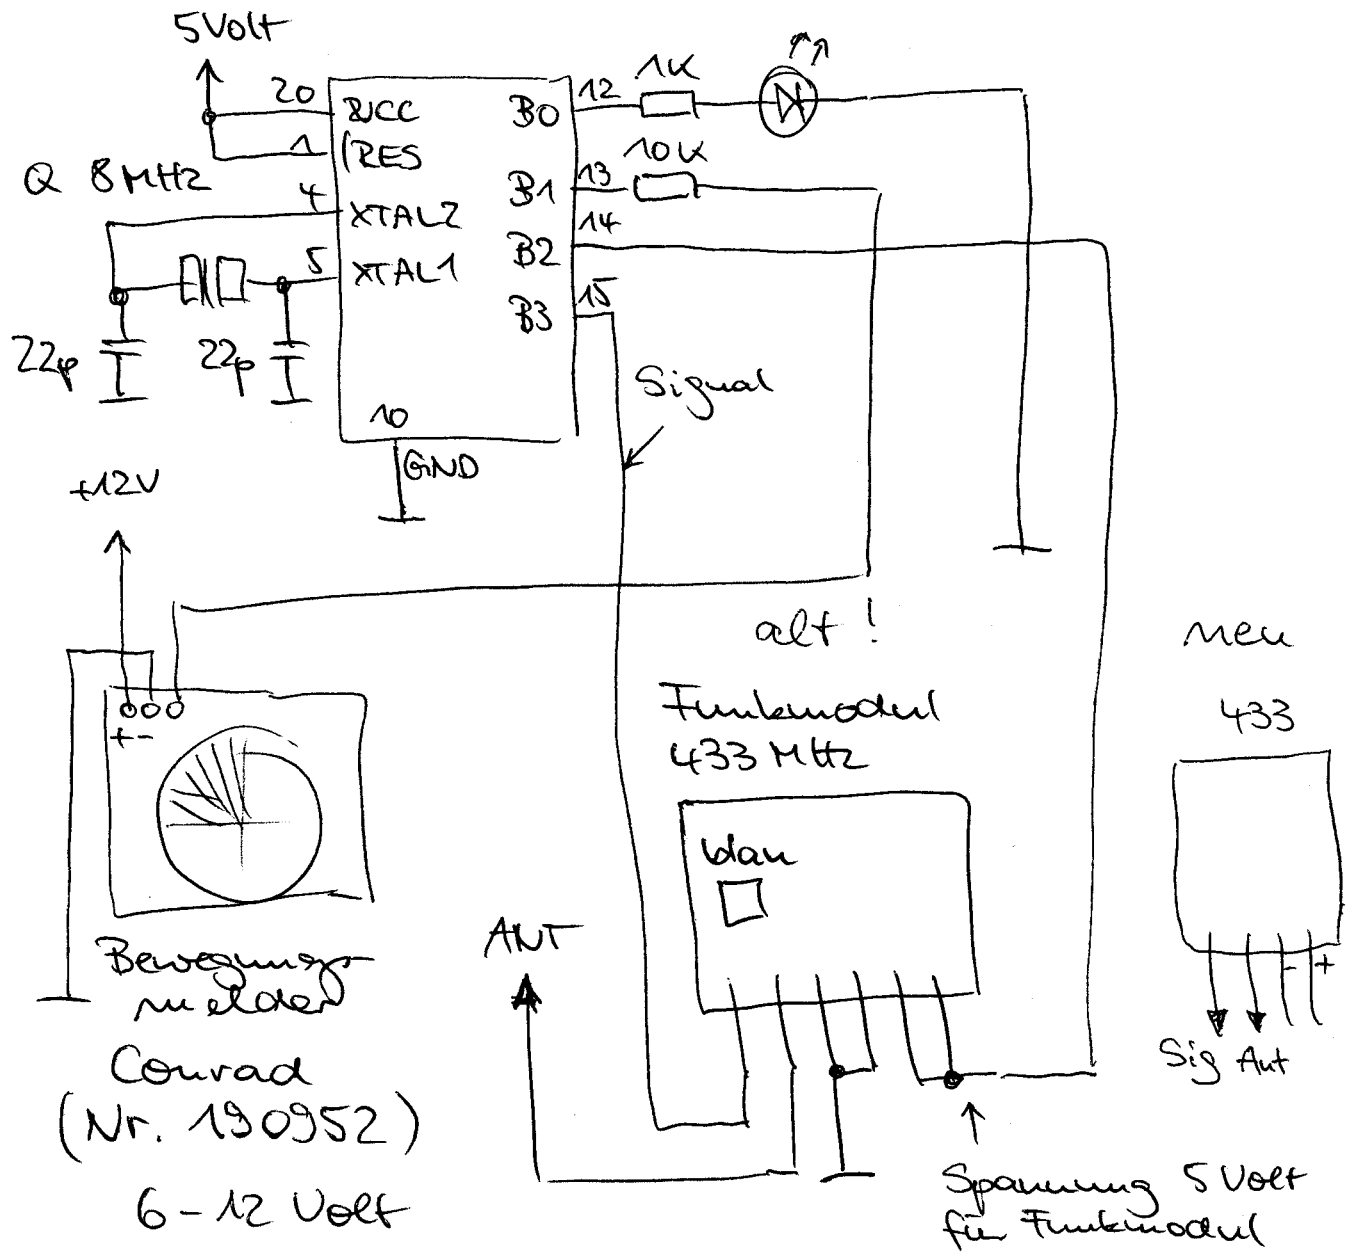 5Volt
20 VCC
1 (RES
Q 8MHz
4 XTAL2
5 XTAL1
22p
22p
10
GND
B0 12
1K
B1 13
10K
B2 14
B3 15
Signal
+12V
+ -
Bewegungs-
melder
Conrad
(Nr. 190952)
6-12 Volt
alt!
Funkmodul
433 MHz
blau
ANT
Spannung 5Volt
für Funkmodul
neu
433
- +
Sig Ant